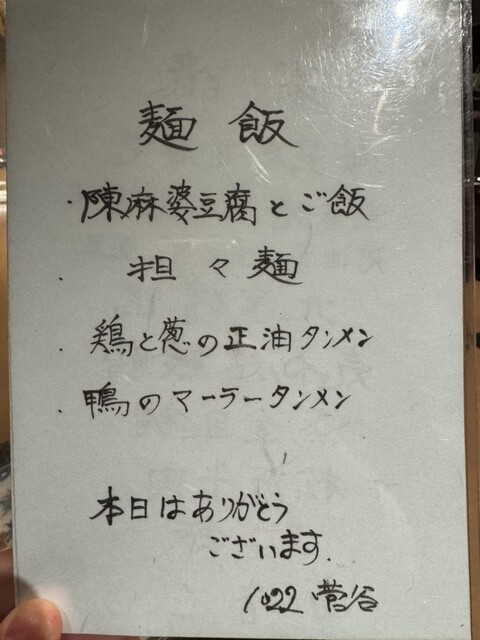 麺 飯
・陳麻婆豆腐とご飯
・担々麺
・鶏と葱の正油タンメン
・鴨のマーラータンメン
本日はありがとう
ございます.
1022 菅谷